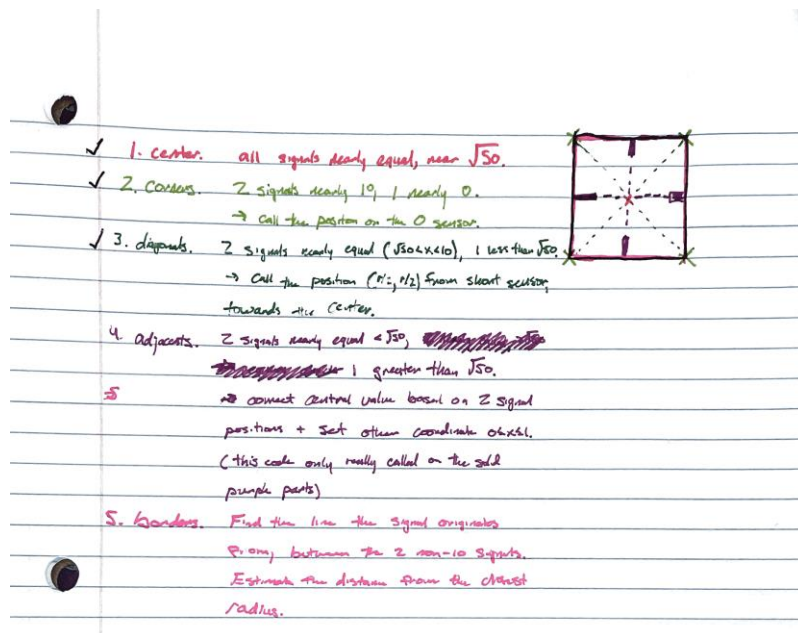 1. center. all signals nearly equal, near √50.
2. Corners. 2 signals nearly 10, 1 nearly 0.
→ Call the position on the 0 sensor.
3. diagonals. 2 signals nearly equal (√50<x<10), 1 less than √50.
→ Call the position (r/2, r/2) from short sensor,
towards the center.
4. adjacents. 2 signals nearly equal < √50,
1 greater than √50.
5
→ correct central value based on 2 signal
positions + set other coordinate 0≤x≤1.
(this code only really called on the solid
purple parts)
5. borders. Find the line the signal originates
from, between the 2 non-10 signals.
Estimate the distance from the closest
radius.